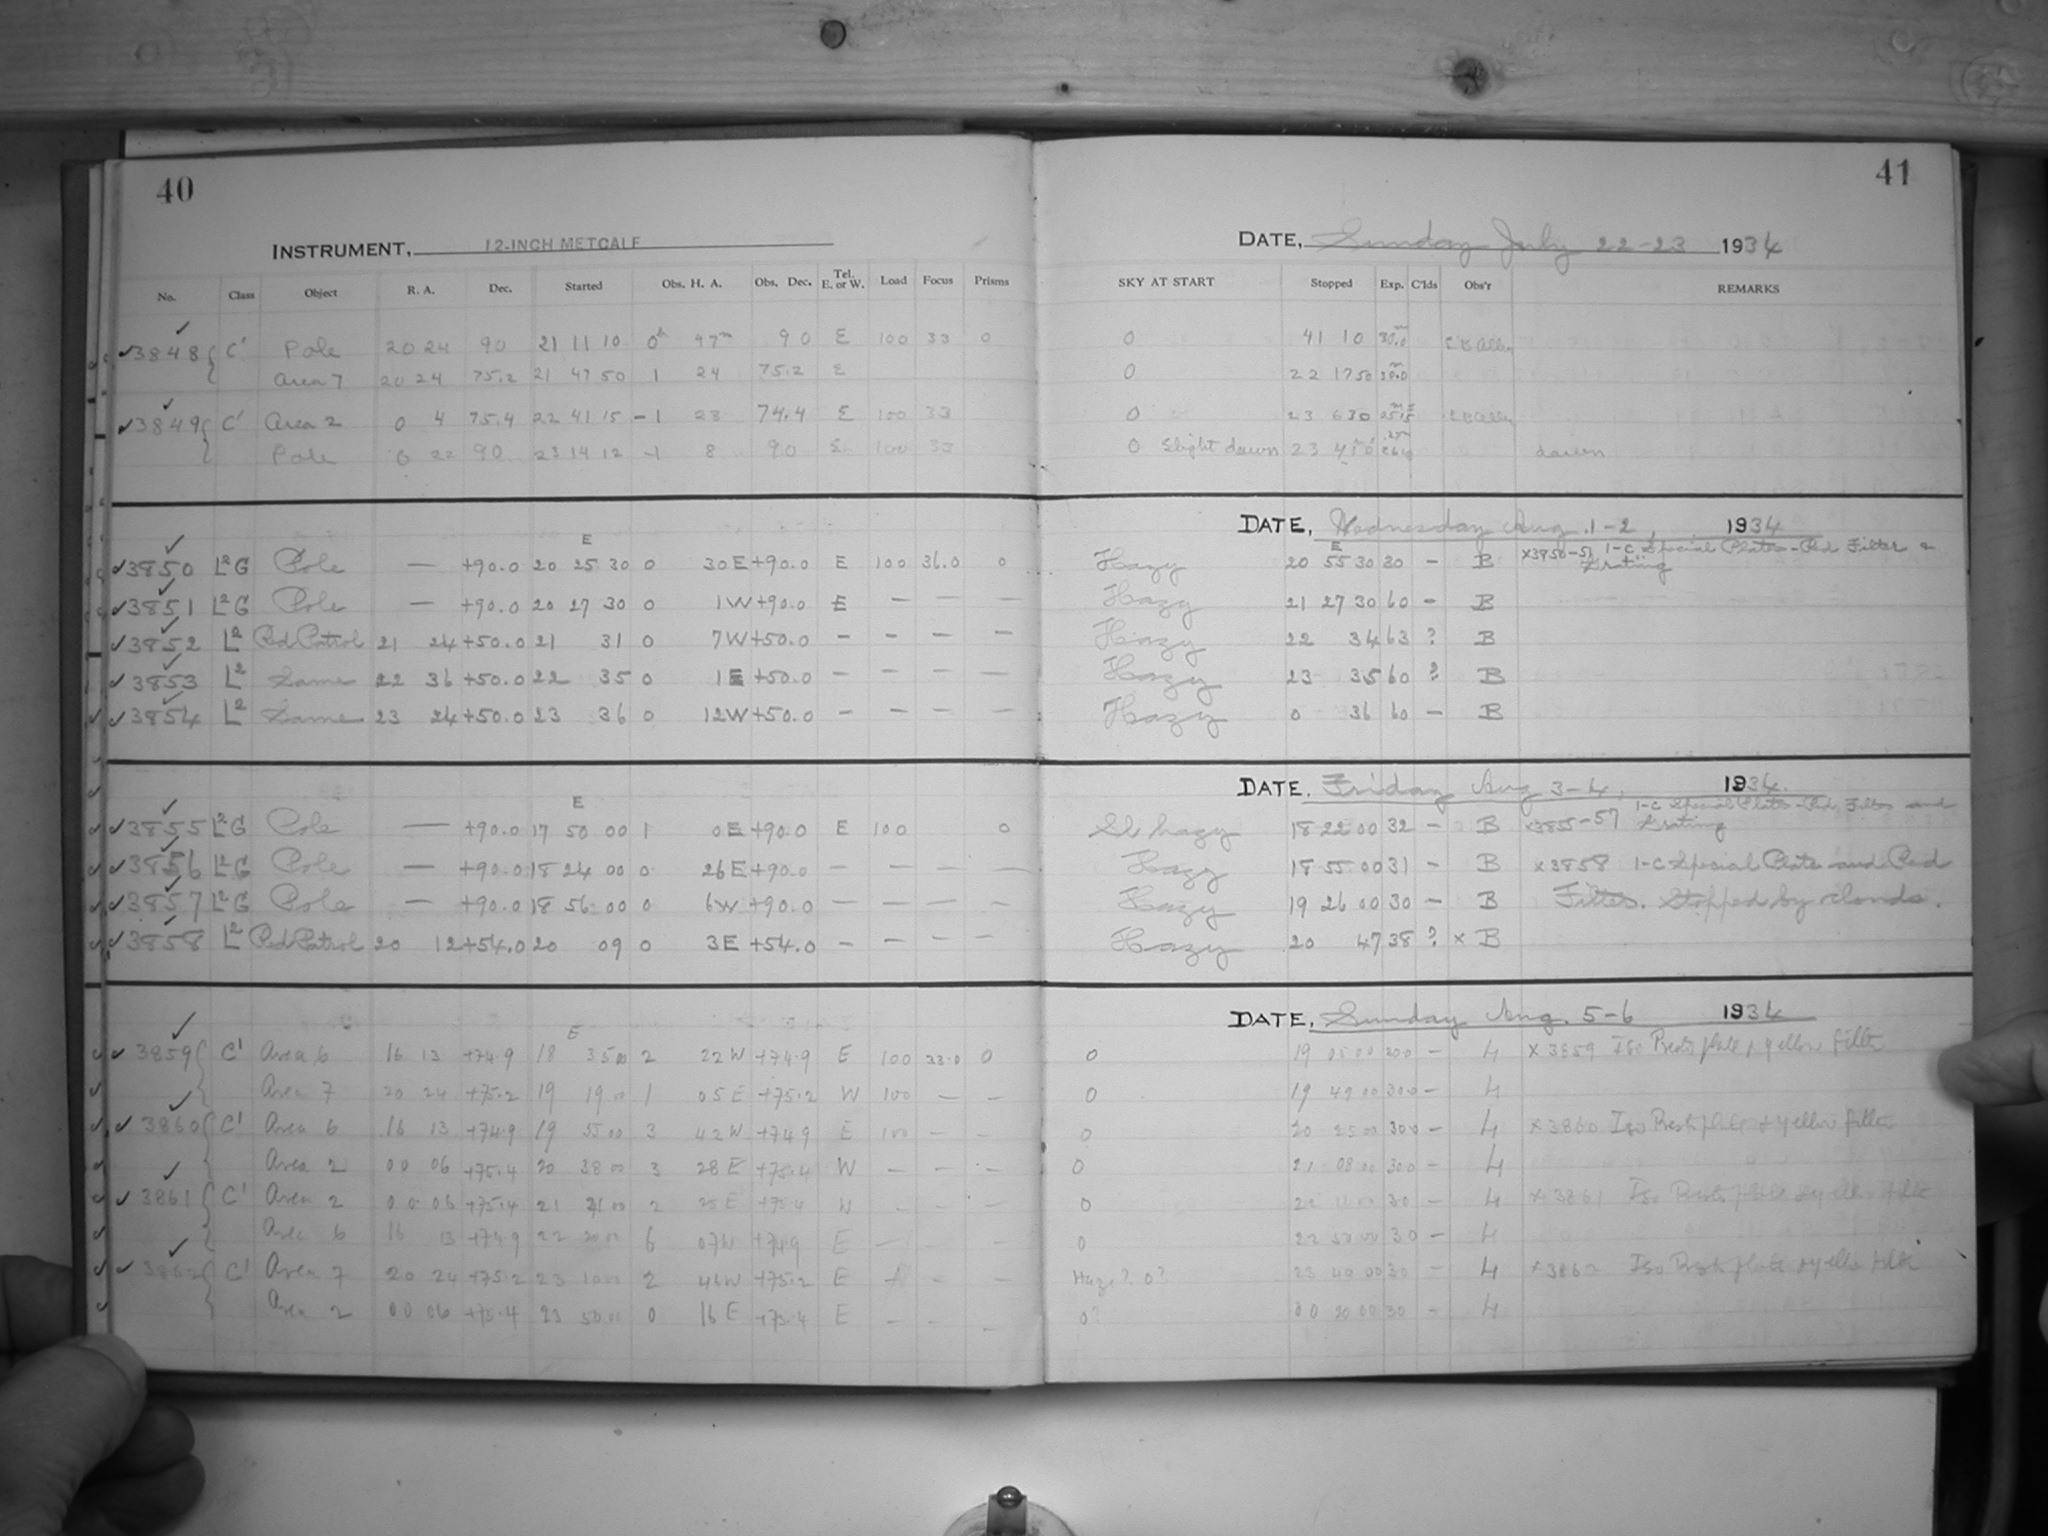 40
41
INSTRUMENT, 12-INCH METCALF
DATE, Sunday July 22-23 1934
No. Class Object R. A. Dec. Started Obs. H. A. Obs. Dec. Tel. E. or W. Load Focus Prisms SKY AT START Stopped Exp. C'lds Obs'r REMARKS
✓3848 C' Pole 20 24 90 21 11 10 0h 47m 90 E 100 33 0 0 41 10 30.0
Area 7 20 24 75.2 21 47 50 1 24 75.2 E 0 22 17 50 30.0
✓3849 C' Area 2 0 4 75.4 22 41 15 -1 23 74.4 E 100 33 0 23 6 30
Pole 0 22 90 23 14 12 -1 8 90 E 100 33 0 Slight dawn 23 dawn
DATE, Wednesday Aug. 1-2, 1934
E E
✓3850 L²G Pole — +90.0 20 25 30 0 30 E +90.0 E 100 36.0 0 Hazy 20 55 30 30 – B x3850-51 1-C Special Plates - Red Filter & Grating
✓3851 L²G Pole — +90.0 20 27 30 0 1 W +90.0 E — — — Hazy 21 27 30 60 – B
✓3852 L² Red Patrol 21 24 +50.0 21 31 0 7 W +50.0 – – – – Hazy 22 34 63 ? B
✓3853 L² Same 22 36 +50.0 22 35 0 1 E +50.0 – – – – Hazy 23 35 60 ? B
✓3854 L² Same 23 24 +50.0 23 36 0 12 W +50.0 – – – – Hazy 0 36 60 – B
DATE. Friday Aug 3-4, 1934.
E
✓3855 L²G Pole — +90.0 17 50 00 1 0 E +90.0 E 100 0 Sl hazy 18 22 00 32 – B x3855-57 1-C Special Plates - Red Filter and Grating
✓3856 L²G Pole — +90.0 18 24 00 0 26 E +90.0 – – – — Hazy 18 55 00 31 – B x3858 1-C Special Plate and Red
✓3857 L²G Pole — +90.0 18 56 00 0 6 W +90.0 — — — – Hazy 19 26 00 30 – B Filter. Stopped by clouds.
✓3858 L² Red Patrol 20 12 +54.0 20 09 0 3 E +54.0 – – – – Hazy 20 47 38 ? x B
DATE, Sunday Aug. 5-6 1934
E
✓3859 C' Area 6 16 13 +74.9 18 35 00 2 22 W +74.9 E 100 33.0 0 0 19 05 00 30.0 – 4 x 3859 Iso Presto plate, yellow filter
Area 7 20 24 +75.2 19 19 00 1 05 E +75.2 W 100 – – 0 19 49 00 30.0 – 4
✓3860 C' Area 6 16 13 +74.9 19 55 00 3 42 W +74.9 E 100 – – 0 20 25 00 30.0 – 4 x3860 Iso Presto plate + yellow filter
Area 2 00 06 +75.4 20 38 00 3 28 E +75.4 W – – – 0 21 08 00 30.0 – 4
✓3861 C' Area 2 00 06 +75.4 21 00 2 25 E +75.4 W – – – 0 30 – 4 x3861 Iso Presto plate + yellow filter
Area 6 16 13 +74.9 22 20 00 6 07 W +74.9 E — – – 0 22 50 00 30 – 4
✓3862 C' Area 7 20 24 +75.2 23 10 00 2 46 W +75.2 E – – Haze? 0? 23 40 00 30 – 4 x3862 Iso Presto plate + yellow filter
Area 2 00 06 +75.4 23 50 00 0 16 E +75.4 E – – – 0? 00 20 00 30 – 4